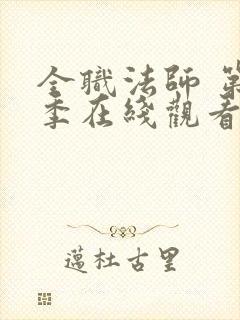 全職法師 第
季在綫觀看
邁杜古里